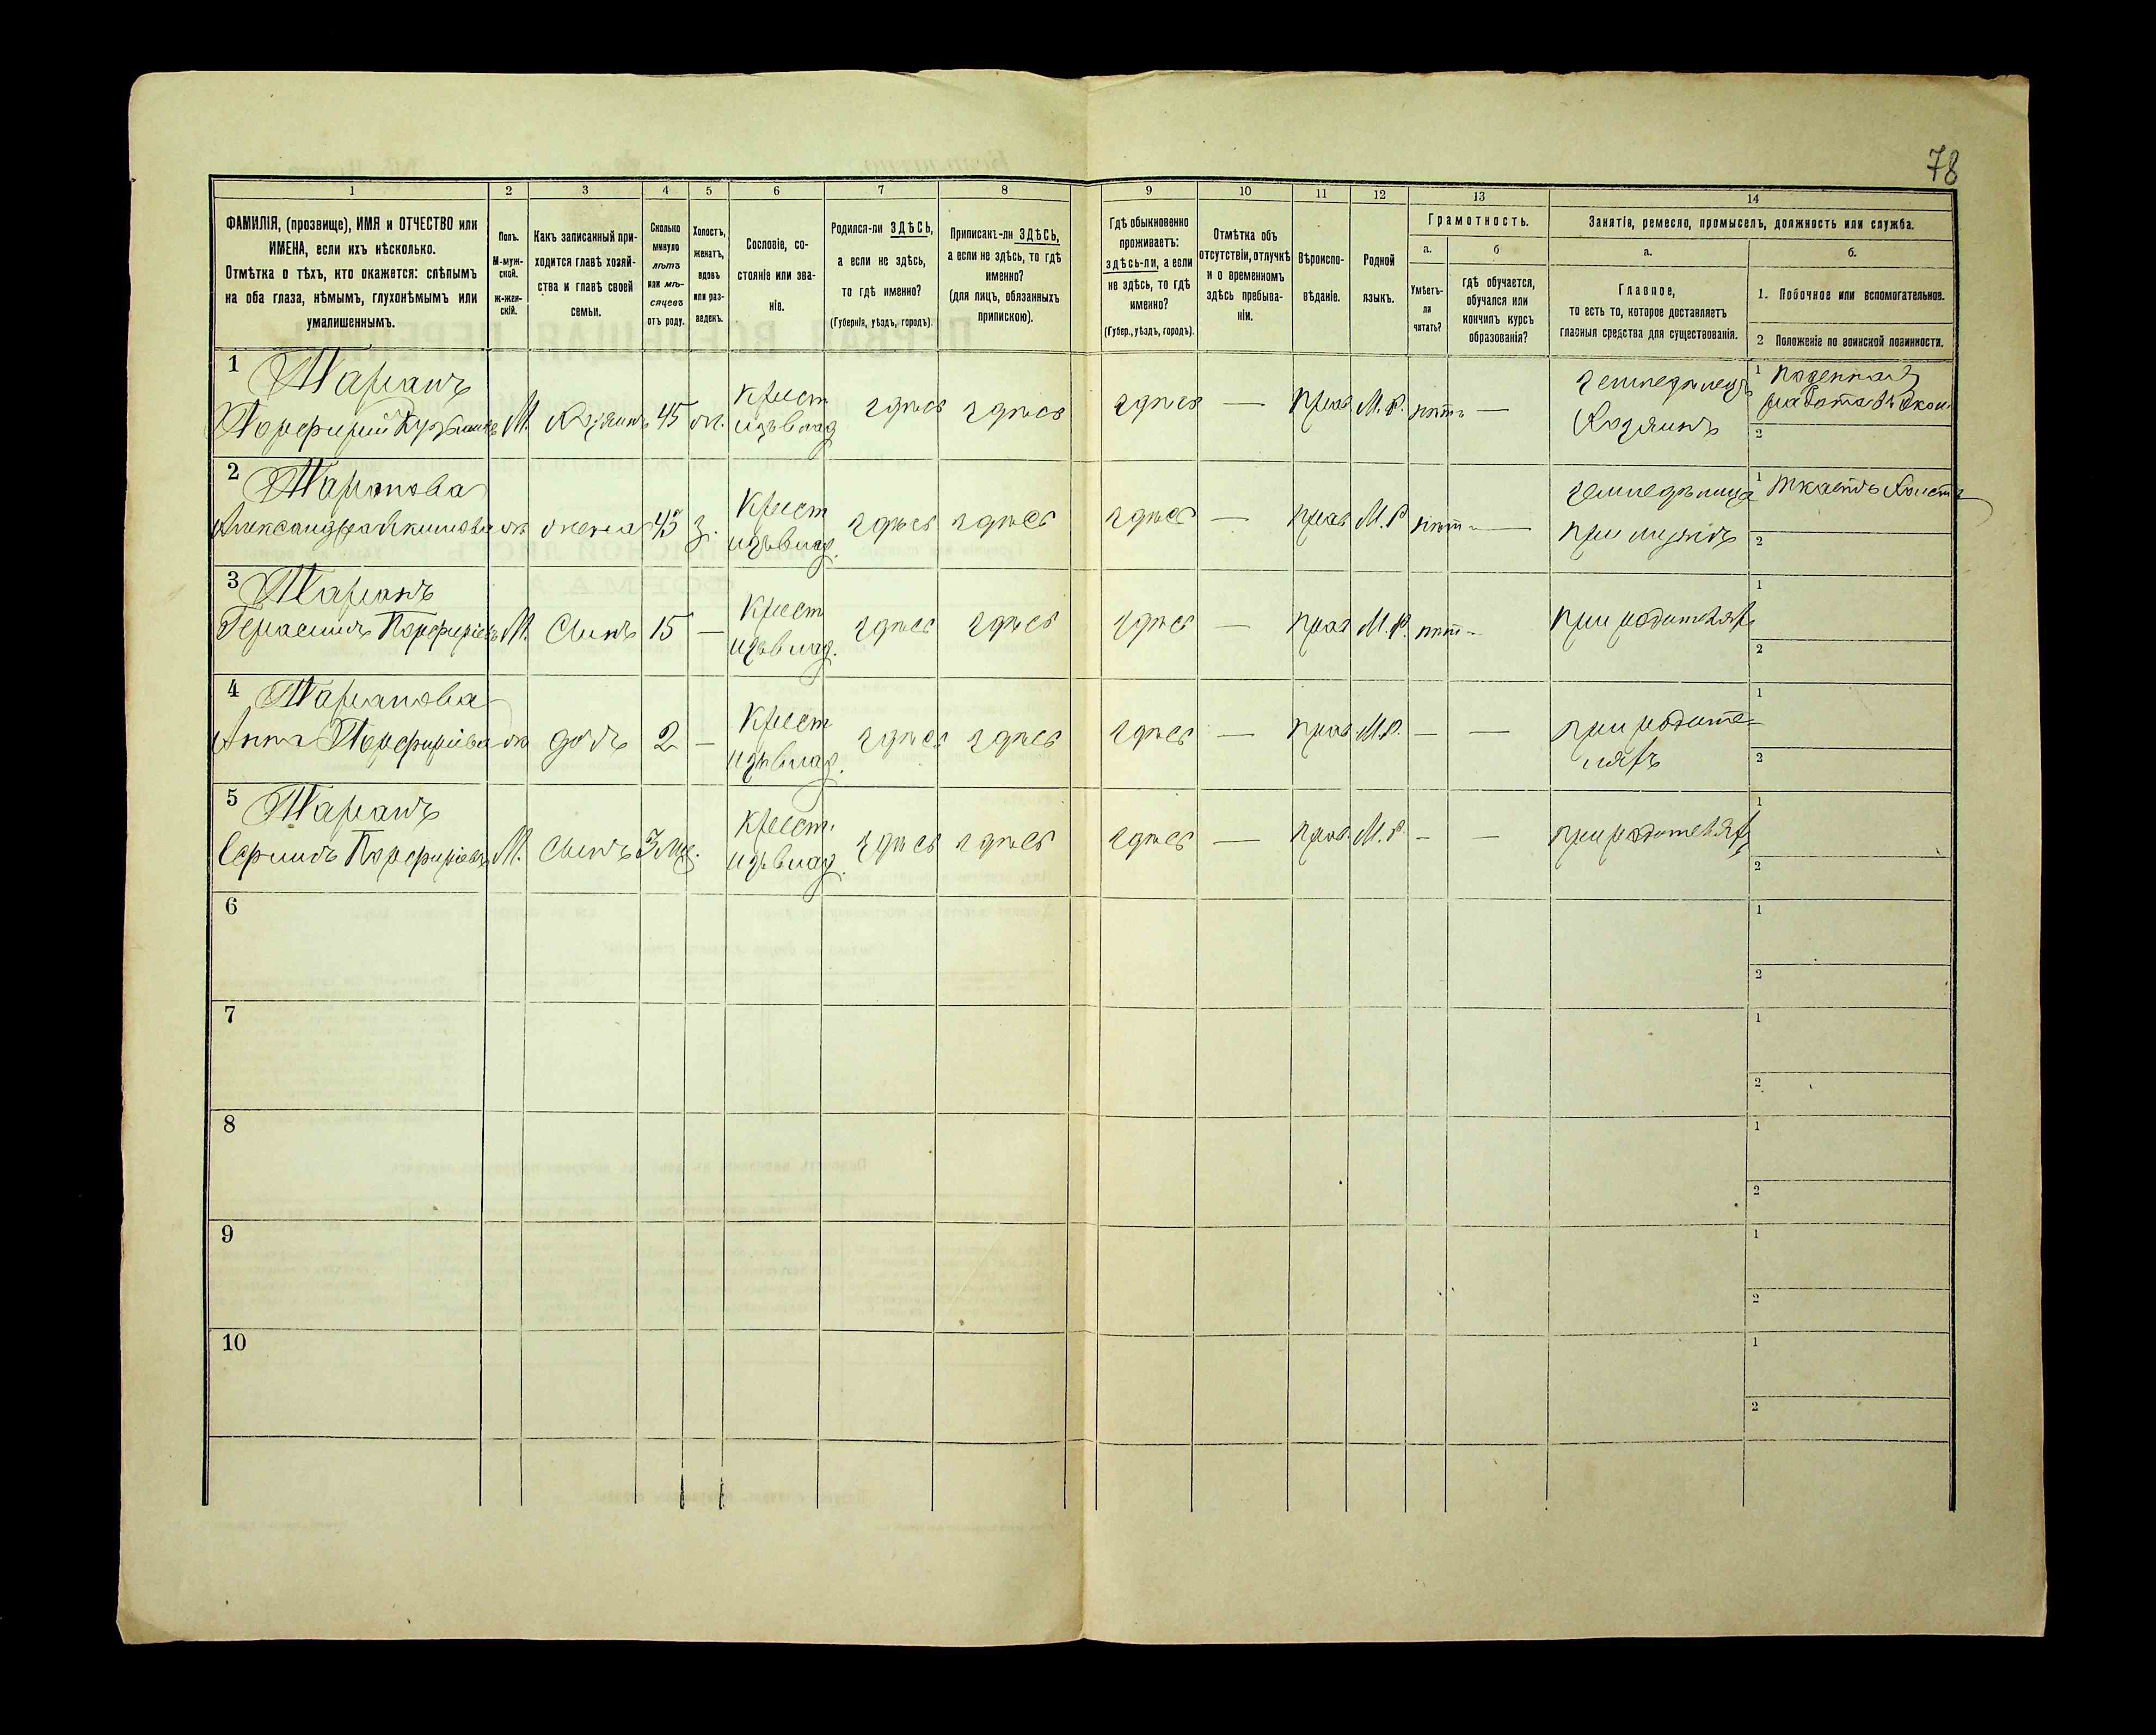 78
1 2 3 4 5 6 7 8 9 10 11 12 13 14
ФАМИЛІЯ, (прозвище), ИМЯ и ОТЧЕСТВО или
ИМЕНА, если ихъ нѣсколько.
Отмѣтка о тѣхъ, кто окажется: слѣпымъ
на оба глаза, нѣмымъ, глухонѣмымъ или
умалишеннымъ.
Полъ.
М-муж-
ской.
Ж-жен-
скій.
Какъ записанный при-
ходится главѣ хозяй-
ства и главѣ своей
семьи.
Сколько
минуло
лѣтъ
или мѣ-
сяцевъ
отъ роду.
Холостъ,
женатъ,
вдовъ
или раз-
веденъ.
Сословіе, со-
стояніе или зва-
ніе.
Родился-ли ЗДѢСЬ,
а если не здѣсь,
то гдѣ именно?
(Губернія, уѣздъ, городъ).
Приписанъ-ли ЗДѢСЬ,
а если не здѣсь, то гдѣ
именно?
(для лицъ, обязанныхъ
припискою).
Гдѣ обыкновенно
проживаетъ:
здѣсь-ли, а если
не здѣсь, то гдѣ
именно?
(Губер., уѣздъ, городъ).
Отмѣтка объ
отсутствіи, отлучкѣ
и о временномъ
здѣсь пребыва-
ніи.
Вѣроиспо-
вѣданіе.
Родной
языкъ.
Грамотность.
а.
Умѣетъ-
ли
читать?
б
Гдѣ обучается,
обучался или
кончилъ курсъ
образованія?
Занятіе, ремесло, промыселъ, должность или служба.
а.
Главное,
то есть то, которое доставляетъ
главныя средства для существованія.
б.
1. Побочное или вспомогательное.
2 Положеніе по воинской повинности.
1 Таранъ
Порфирій М. Хозяинъ 45 ж. Крест изъ влад здѣсь здѣсь здѣсь — прав М.Р. нѣтъ — земледѣлецъ Хозяинъ
1 поденная работа
2
2 Таранова
Александра Акимова ж жена 45 з. Крест изъ влад. здѣсь здѣсь здѣсь — прав М.Р нѣтъ — земледѣлица при мужѣ
1
2
3 Таранъ
Герасимъ Порфиріевъ М. Сынъ 15 — Крест изъ влад. здѣсь здѣсь здѣсь — прав М.Р. нѣтъ при родителях
1
2
4 Таранова
Анна Порфиріева ж дочь 2 — Крест изъ влад. здѣсь здѣсь здѣсь — прав. М.Р. — — при родите-
ляхъ
1
2
5 Таранъ
Порфиріевъ М. Сынъ 3 мѣс. Крест. изъ влад. здѣсь здѣсь здѣсь — прав. М.Р. — — при родителях
1
2
6
1
2
7
1
2
8
1
2
9
1
2
10
1
2